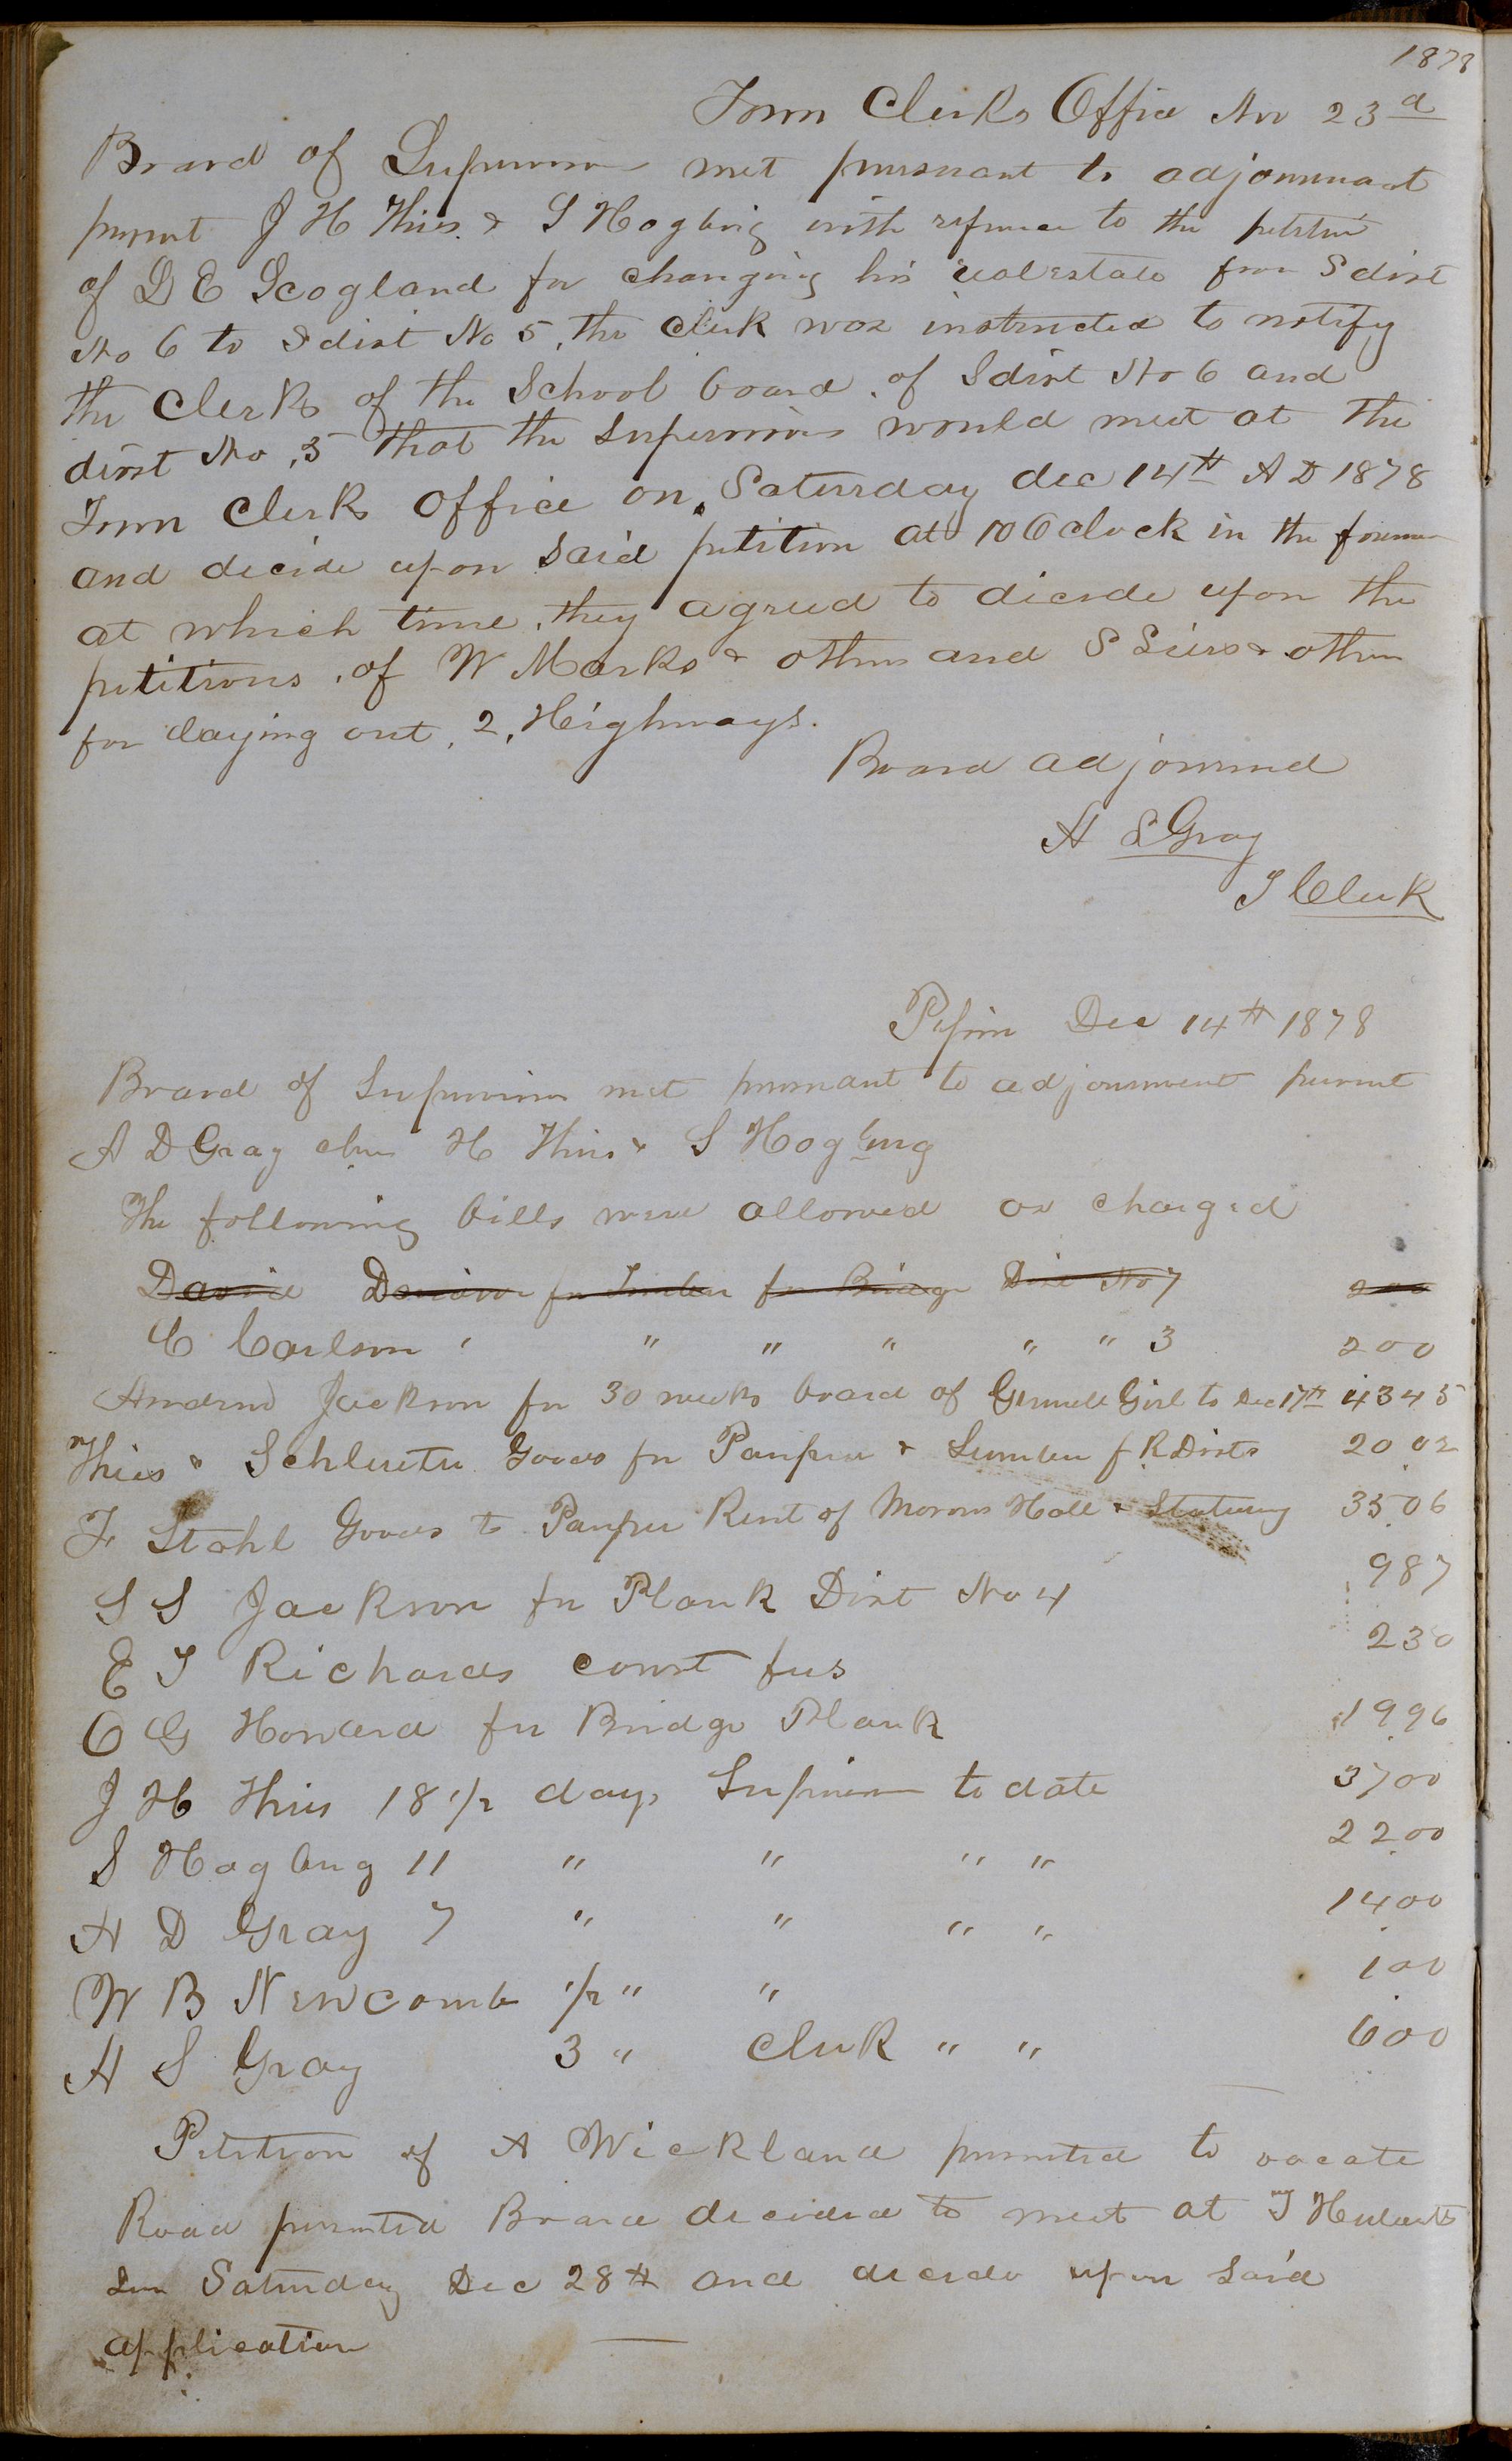 1878
Town Clerks Office Nov 23d
Board of Supervisors met pursuant to adjournment
present J H Thies & S Hogberg with refrence to the petition
of D E Scogland for changing his real estate from S dist
No 6 to S dist No 5, the Clerk was instructed to notify
the Clerks of the School board of S dist No 6 and
dist No. 5 that the supervisors would meet at the
Town Clerks Office on Saturday dec 14th A D 1878
and decide upon Said petition at 10 O clock in the forenoon
at which time they agreed to decide upon the
petitions of W Marks & others and S & others
for laying out, 2, Highways.
Board adjourned
A S Gray
T Clerk
Pepin Dec 14th 1878
Board of Supervisors met pursuant to adjournment present
A D Gray chm H Thies & S Hogberg
The following bills were allowed as charged
David for Lumber for Bridge Dist No 7 200
C Carlson " " " " " " 3 200
Jackson for 30 weeks board of Girl to Dec 17th 4345
Thies & Schluter Goods for Pauper & Lumber f R Dists 20.02
F Stahl Goods to Pauper Rent of Hall & 35.06
S S Jackson for Plank Dist No 4 987
E T Richards court fees 230
O G Howard for Bridge Plank 1996
J H Thies 18 1/2 days Supervisor to date 3700
S Hogberg 11 " " " " 2200
A D Gray 7 " " " " 1400
W B Newcomb 1/2 " " 100
A S Gray 3 " Clerk " " 600
Petition of A Wickland presented to vacate
Road presented Board decided to meet at T
on Saturday Dec 28th and decide upon Said
application